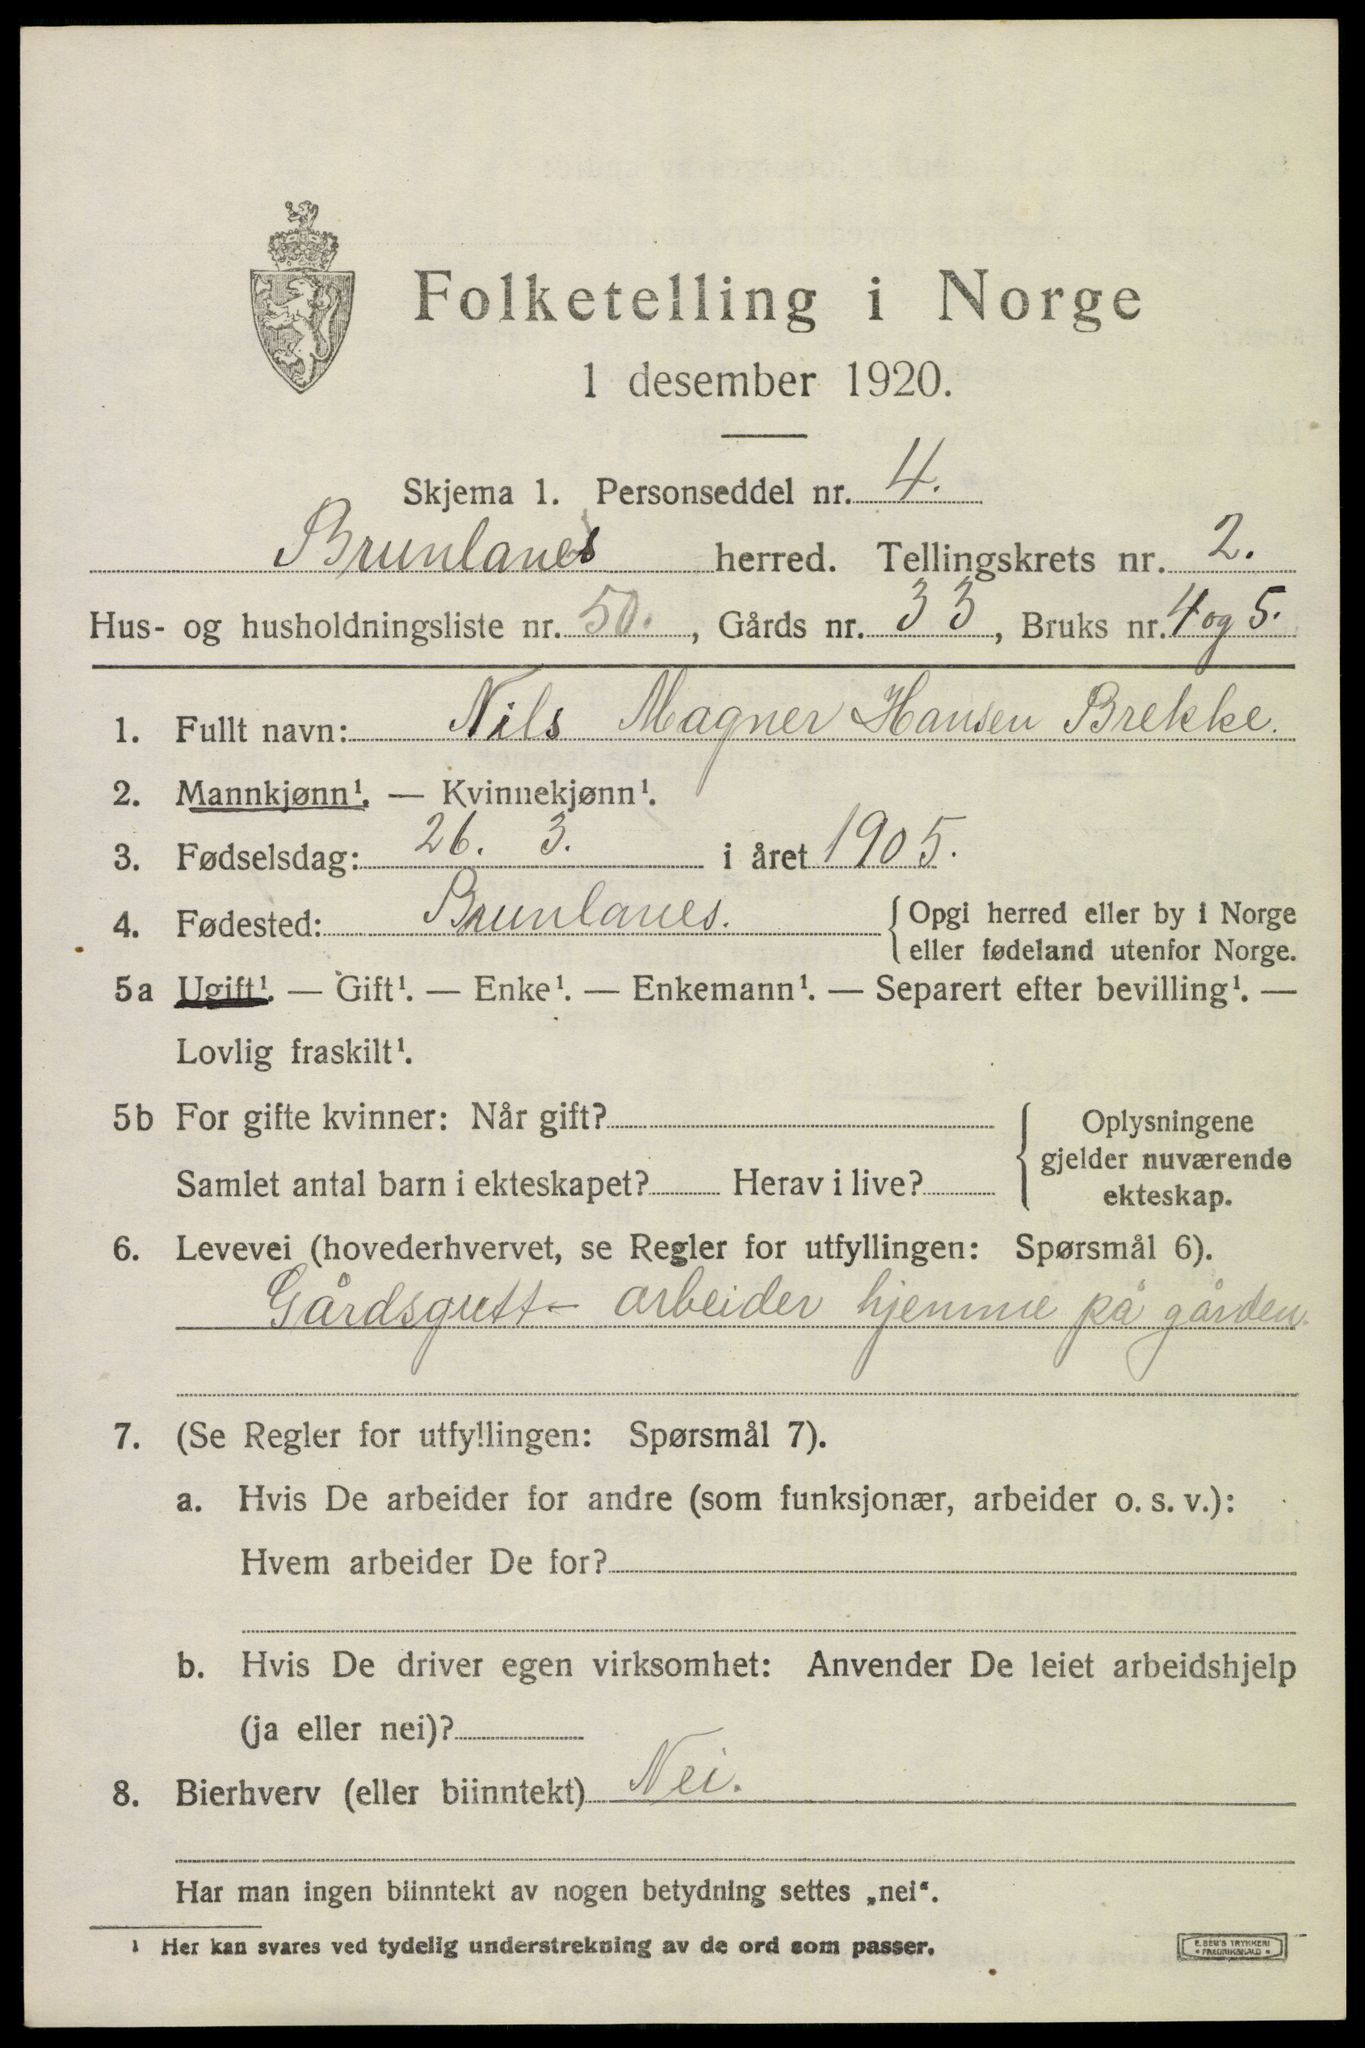 Folketelling i Norge
1 desember 1920.
Skjema 1. Personseddel nr. 4.
Brunlanes herred. Tellingskrets nr. 2.
Hus- og husholdningsliste nr. 50., Gårds nr. 33, Bruks nr. 4 og 5.
1. Fullt navn: Nils Magner Hansen Brekke.
2. Mannkjønn¹. — Kvinnekjønn¹.
3. Fødselsdag: 26. 3. i året 1905.
4. Fødested: Brunlanes. { Opgi herred eller by i Norge
eller fødeland utenfor Norge.
5a Ugift¹. — Gift¹. — Enke¹. — Enkemann¹. — Separert efter bevilling¹. —
Lovlig fraskilt¹.
5b For gifte kvinner: Når gift?
Samlet antal barn i ekteskapet? Herav i live?
Oplysningene
gjelder nuværende
ekteskap.
6. Levevei (hovederhvervet, se Regler for utfyllingen: Spørsmål 6).
Gårdsgutt - arbeider hjemme på gården.
7. (Se Regler for utfyllingen: Spørsmål 7).
a. Hvis De arbeider for andre (som funksjonær, arbeider o. s. v.):
Hvem arbeider De for?
b. Hvis De driver egen virksomhet: Anvender De leiet arbeidshjelp
(ja eller nei)?
8. Bierhverv (eller biinntekt) Nei.
Har man ingen biinntekt av nogen betydning settes „nei“.
¹ Her kan svares ved tydelig understrekning av de ord som passer.
E. SEM'S TRYKKERI
FREDRIKSHALD